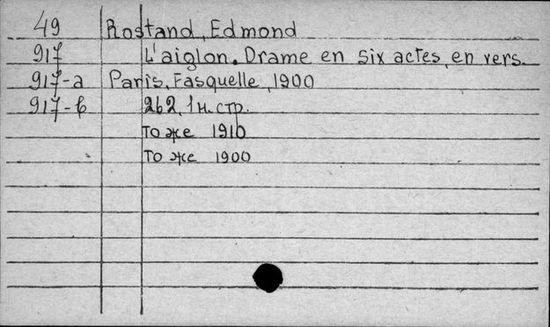 49 Rostand, Edmond
917 L'aiglon. Drame en six actes, en vers.
917-a Paris, Fasquelle, 1900
917-б 262, 1 н. стр.
То же 1910
То же 1900